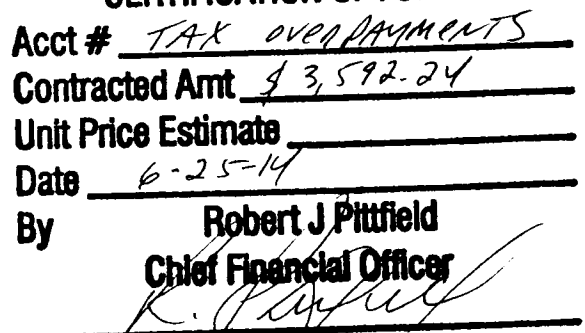 Acct # TAX OVERPAYMENTS
Contracted Amt $ 3,592.24
Unit Price Estimate
Date 6-25-14
By Robert J Pittfield
Chief Financial Officer